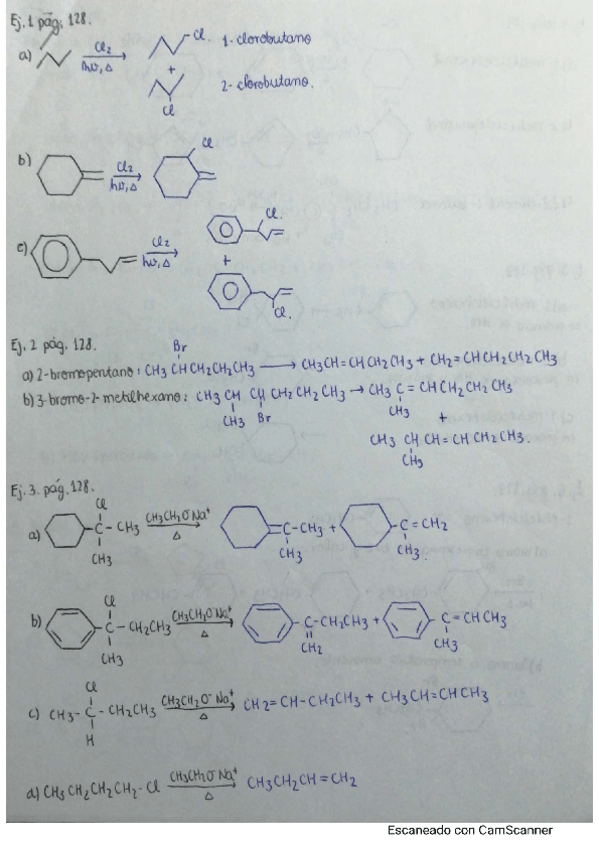 Ej. 1 pág. 128.
a) Cl2 hν, Δ Cl 1-clorobutano
+
Cl 2-clorobutano.
b) Cl2 hν, Δ Cl
c) Cl2 hν, Δ Cl.
+
Cl.
Ej. 2 pág. 128.
Br
a) 2-bromopentano: CH3 CHCH2CH2CH3 → CH3CH=CHCH2CH3 + CH2=CHCH2CH2CH3
b) 3-bromo-2-metilhexano: CH3 CH CH CH2CH2CH3 → CH3 C=CHCH2CH2CH3
CH3 Br CH3
+
CH3 CHCH=CHCH2CH3.
CH3
Ej. 3. pág. 128.
Cl
a) C-CH3 CH3CH2O⁻Na⁺ Δ C-CH3 + C=CH2
CH3 CH3 CH3.
Cl
b) C-CH2CH3 CH3CH2O⁻Na⁺ Δ C-CH2CH3 + C=CHCH3
CH3 CH2 CH3
Cl
c) CH3-C-CH2CH3 CH3CH2O⁻Na⁺ Δ CH2=CH-CH2CH3 + CH3CH=CHCH3
H
d) CH3CH2CH2CH2-Cl CH3CH2O⁻Na⁺ Δ CH3CH2CH=CH2
Escaneado con CamScanner